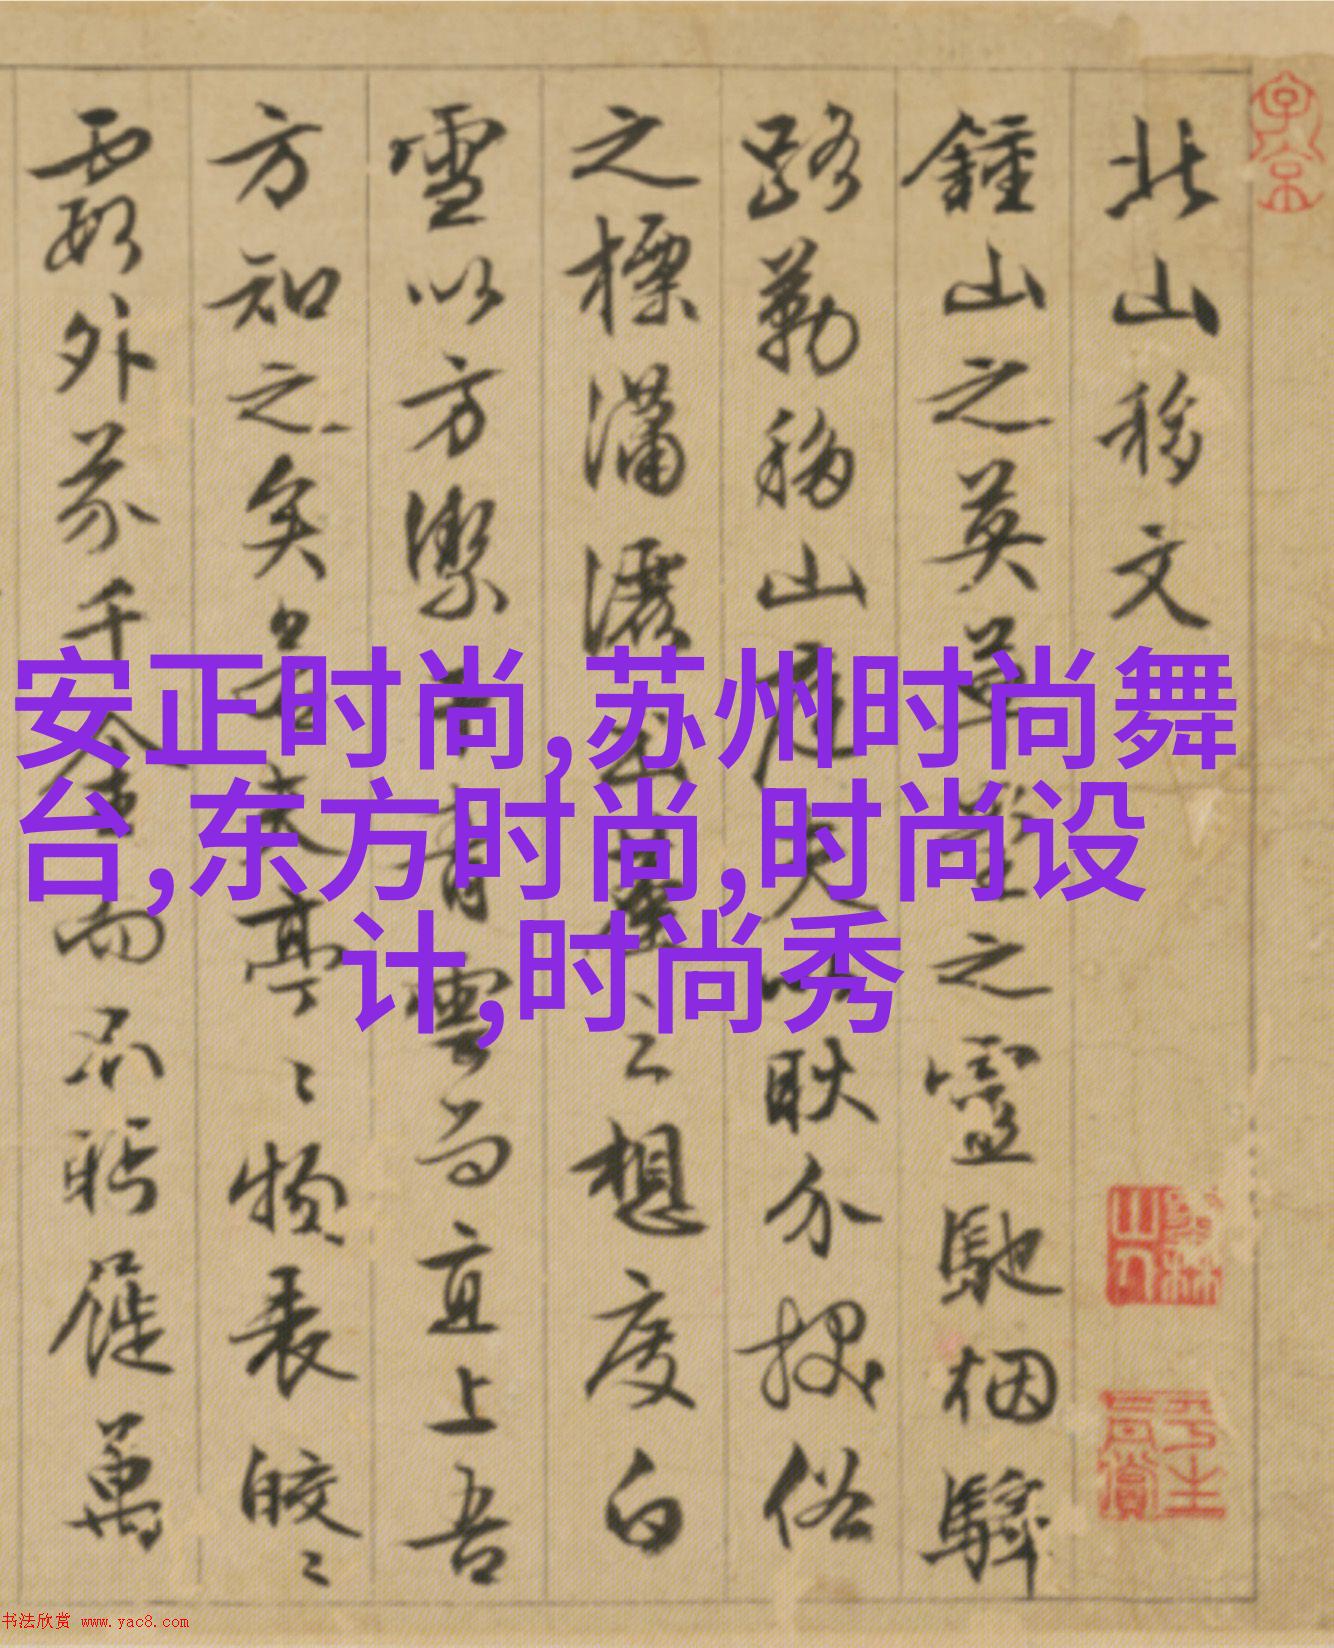 北山移文
鍾山之英草堂之靈馳烟驛
路勒移山庭夫以耿介拔俗
之標瀟灑出塵之想度白
雪以方潔干青雲而直上吾
方知之矣若夫亭〻物表皎〻
霞外芥千金而不盻屣萬
子京
安正时尚,苏州时尚舞
台,东方时尚,时尚设
计,时尚秀
书法欣赏 www.yac8.com